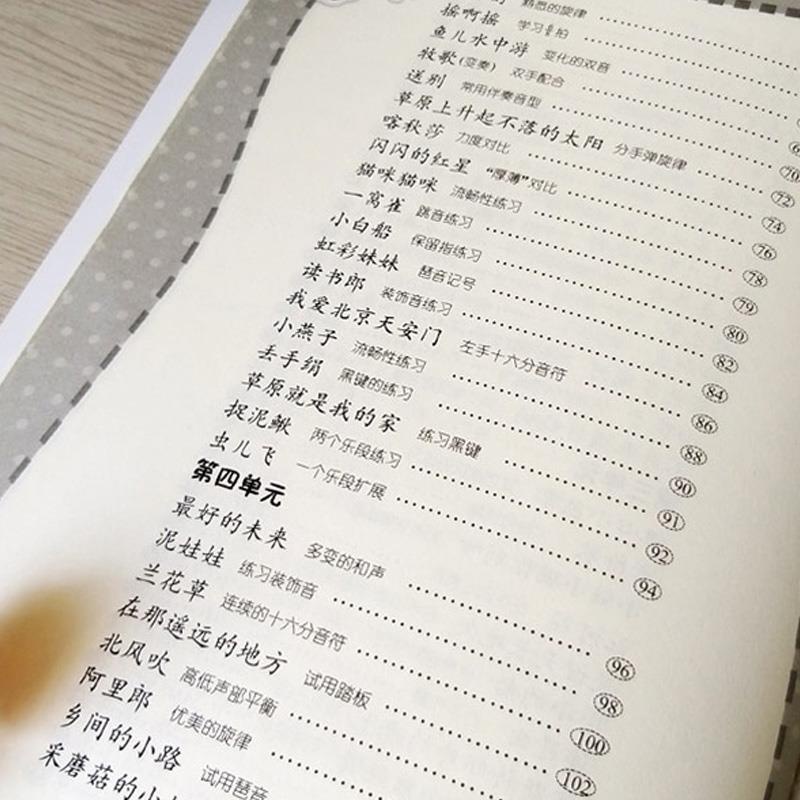 熟悉的旋律
摇啊摇 学习 拍
鱼儿水中游 变化的双音
牧歌(变奏) 双手配合
送别 常用伴奏音型 70
草原上升起不落的太阳 分手弹旋律 72
喀秋莎 力度对比 74
闪闪的红星 “厚薄”对比 76
猫咪猫咪 流畅性练习 78
一窝雀 跳音练习 79
小白船 保留指练习 80
虹彩妹妹 琶音记号 82
读书郎 装饰音练习 84
我爱北京天安门 左手十六分音符 86
小燕子 流畅性练习 88
丢手绢 黑键的练习 90
草原就是我的家 练习黑键 91
捉泥鳅 两个乐段练习 92
虫儿飞 一个乐段扩展 94
第四单元
最好的未来 多变的和声 96
泥娃娃 练习装饰音 98
兰花草 连续的十六分音符 100
在那遥远的地方 试用踏板 102
北风吹 高低声部平衡
阿里郎 优美的旋律
乡间的小路 试用琶音
采蘑菇的小